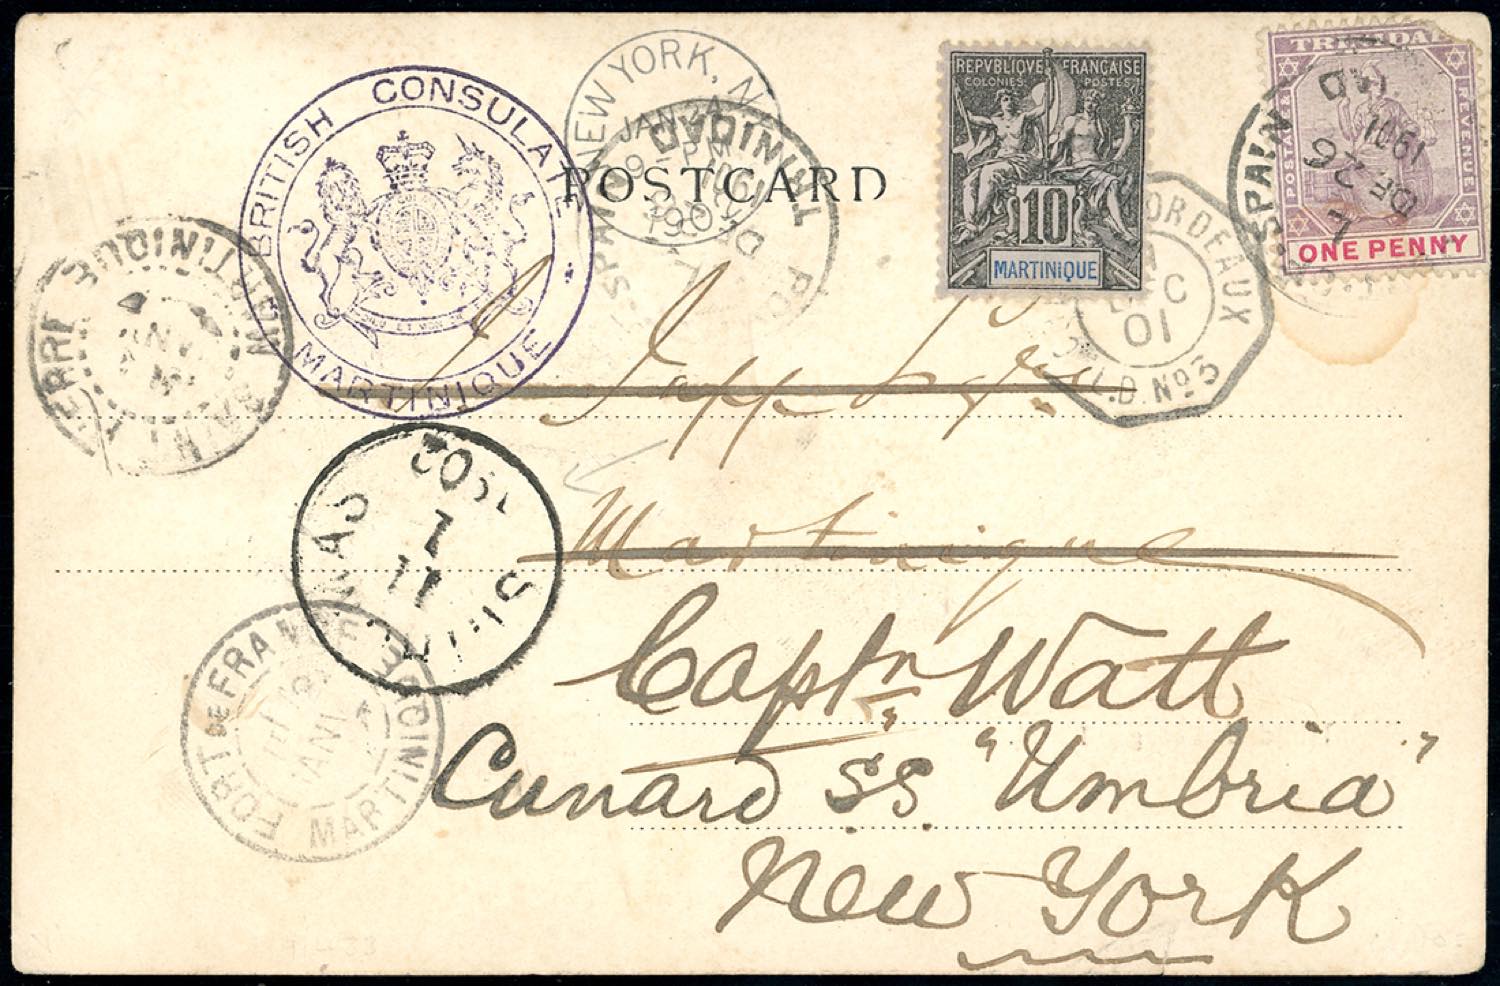 BRITISH CONSULATE
MARTINIQUE
NEW YORK, N.
JAN 24
9-PM
1902
POSTCARD
TRINIDAD
1901
REPVBLIQVE FRANÇAISE
COLONIES POSTES
10
MARTINIQUE
TRINIDAD
POSTAGE & REVENUE
ONE PENNY
SPAIN
L
DE 26
1901
BORDEAUX
01
L.D. No 3
MARTINIQUE
SAINT PIERRE
Martinique
1
11
FORT DE FRANCE
MARTINIQUE
JANV
Captn Watt
Cunard SS "Umbria"
New York